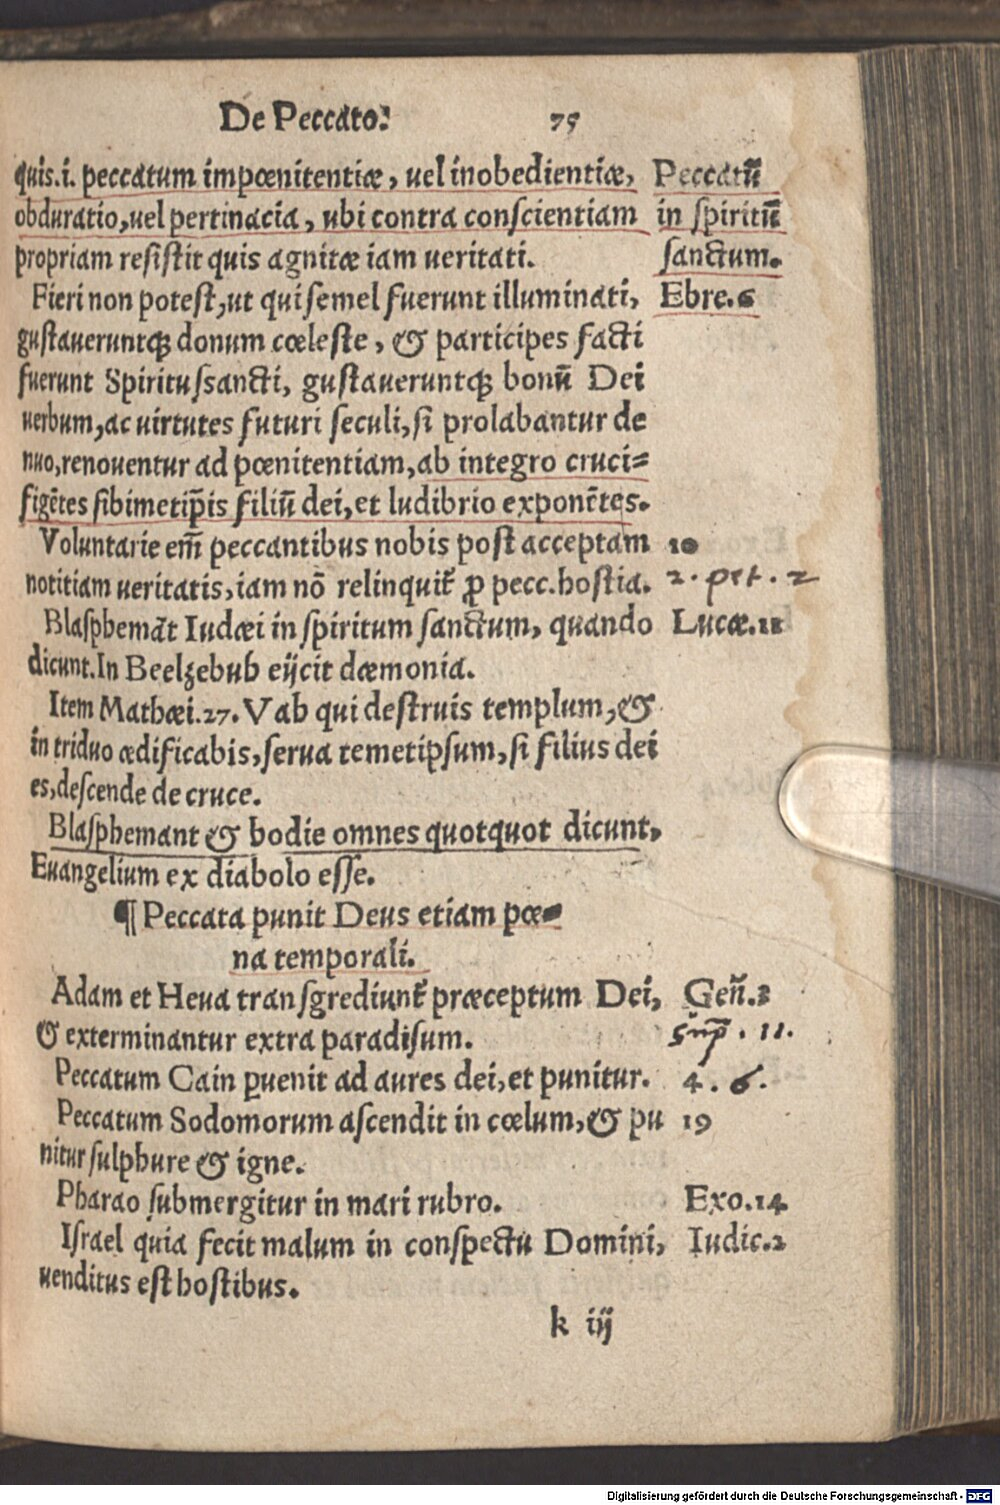 De Peccato. 75
quis.i. peccatum impœnitentiæ, uel inobedientiæ, Peccatū
obduratio,uel pertinacia, ubi contra conscientiam in spiritū
propriam resistit quis agnitæ iam ueritati. sanctum.
Fieri non potest,ut qui semel fuerunt illuminati, Ebre.6
gustaueruntq; donum cœleste, & participes facti
fuerunt Spiritussancti, gustaueruntq; bonū Dei
uerbum,ac uirtutes futuri seculi,si prolabantur de
nuo,renouentur ad pœnitentiam,ab integro cruci=
figētes sibimetip̄is filiū dei,et ludibrio exponētes.
Voluntarie em̄ peccantibus nobis post acceptam 10
notitiam ueritatis,iam nō relinquit̄ ꝓ pecc.hostia. 2. pet. 2
Blasphemāt Iudæi in spiritum sanctum, quando Lucæ.11
dicunt.In Beelzebub eijcit dæmonia.
Item Mathæi.27. Vah qui destruis templum,&
in triduo ædificabis,serua temetipsum,si filius dei
es,descende de cruce.
Blasphemant & hodie omnes quotquot dicunt,
Euangelium ex diabolo esse.
¶ Peccata punit Deus etiam pœ=
na temporali.
Adam et Heua transgrediunt̄ præceptum Dei, Geñ.3
& exterminantur extra paradisum. Sup̄. 11.
Peccatum Cain ꝑuenit ad aures dei,et punitur. 4. 6.
Peccatum Sodomorum ascendit in cœlum,& pu 19
nitur sulphure & igne.
Pharao submergitur in mari rubro. Exo.14
Israel quia fecit malum in conspectu Domini, Iudic.2
uenditus est hostibus.
k iij
Digitalisierung gefördert durch die Deutsche Forschungsgemeinschaft - DFG